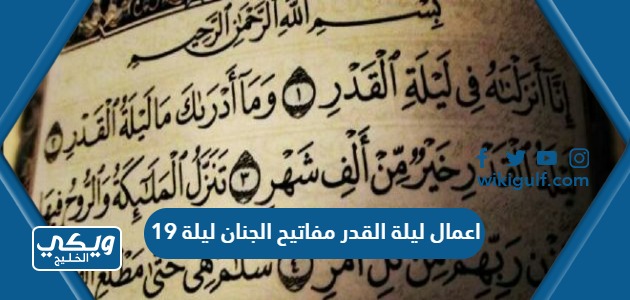 بِسْمِ ٱللَّهِ ٱلرَّحْمَٰنِ ٱلرَّحِيمِ
إِنَّا أَنزَلْنَٰهُ فِى لَيْلَةِ ٱلْقَدْرِ ١ وَمَآ أَدْرَىٰكَ مَا لَيْلَةُ ٱلْقَدْرِ ٢
خَيْرٌ مِّنْ أَلْفِ شَهْرٍ ٣ تَنَزَّلُ ٱلْمَلَٰٓئِكَةُ وَٱلرُّوحُ فِيهَا
رَبِّهِم مِّن كُلِّ أَمْرٍ ٤ سَلَٰمٌ هِىَ حَتَّىٰ مَطْلَعِ
wikigulf.com
اعمال ليلة القدر مفاتيح الجنان ليلة 19
ويكي
الخليج